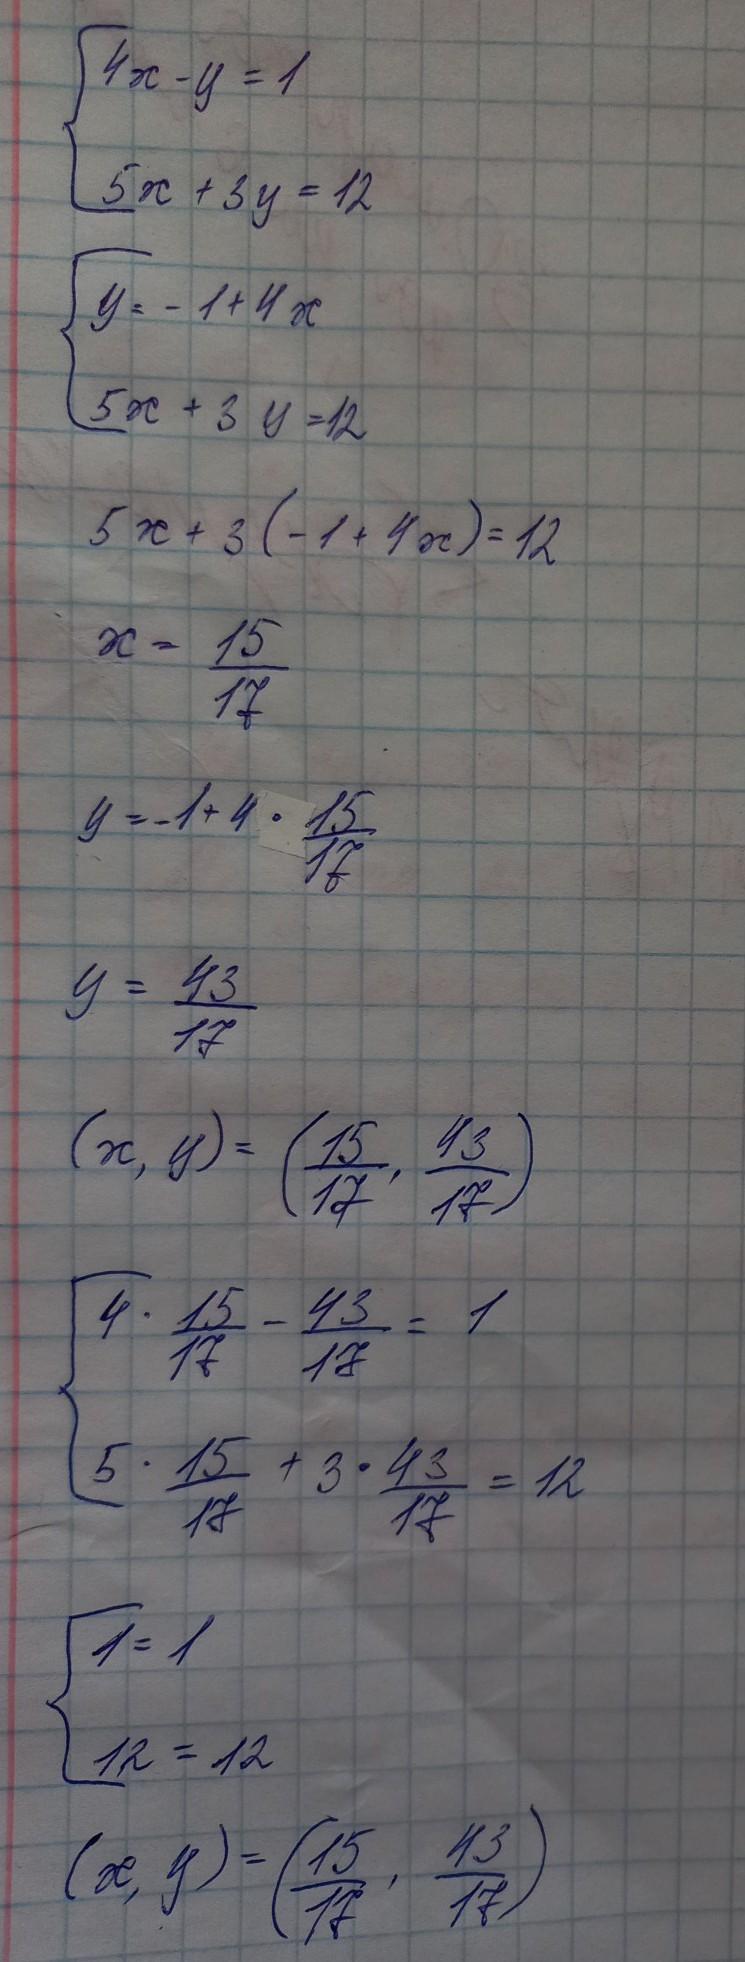 4x - y = 1
5x + 3y = 12
y = -1 + 4x
5x + 3y = 12
5x + 3(-1 + 4x) = 12
x = 15/17
y = -1 + 4 · 15/17
y = 43/17
(x, y) = (15/17, 43/17)
4 · 15/17 - 43/17 = 1
5 · 15/17 + 3 · 43/17 = 12
1 = 1
12 = 12
(x, y) = (15/17, 43/17)